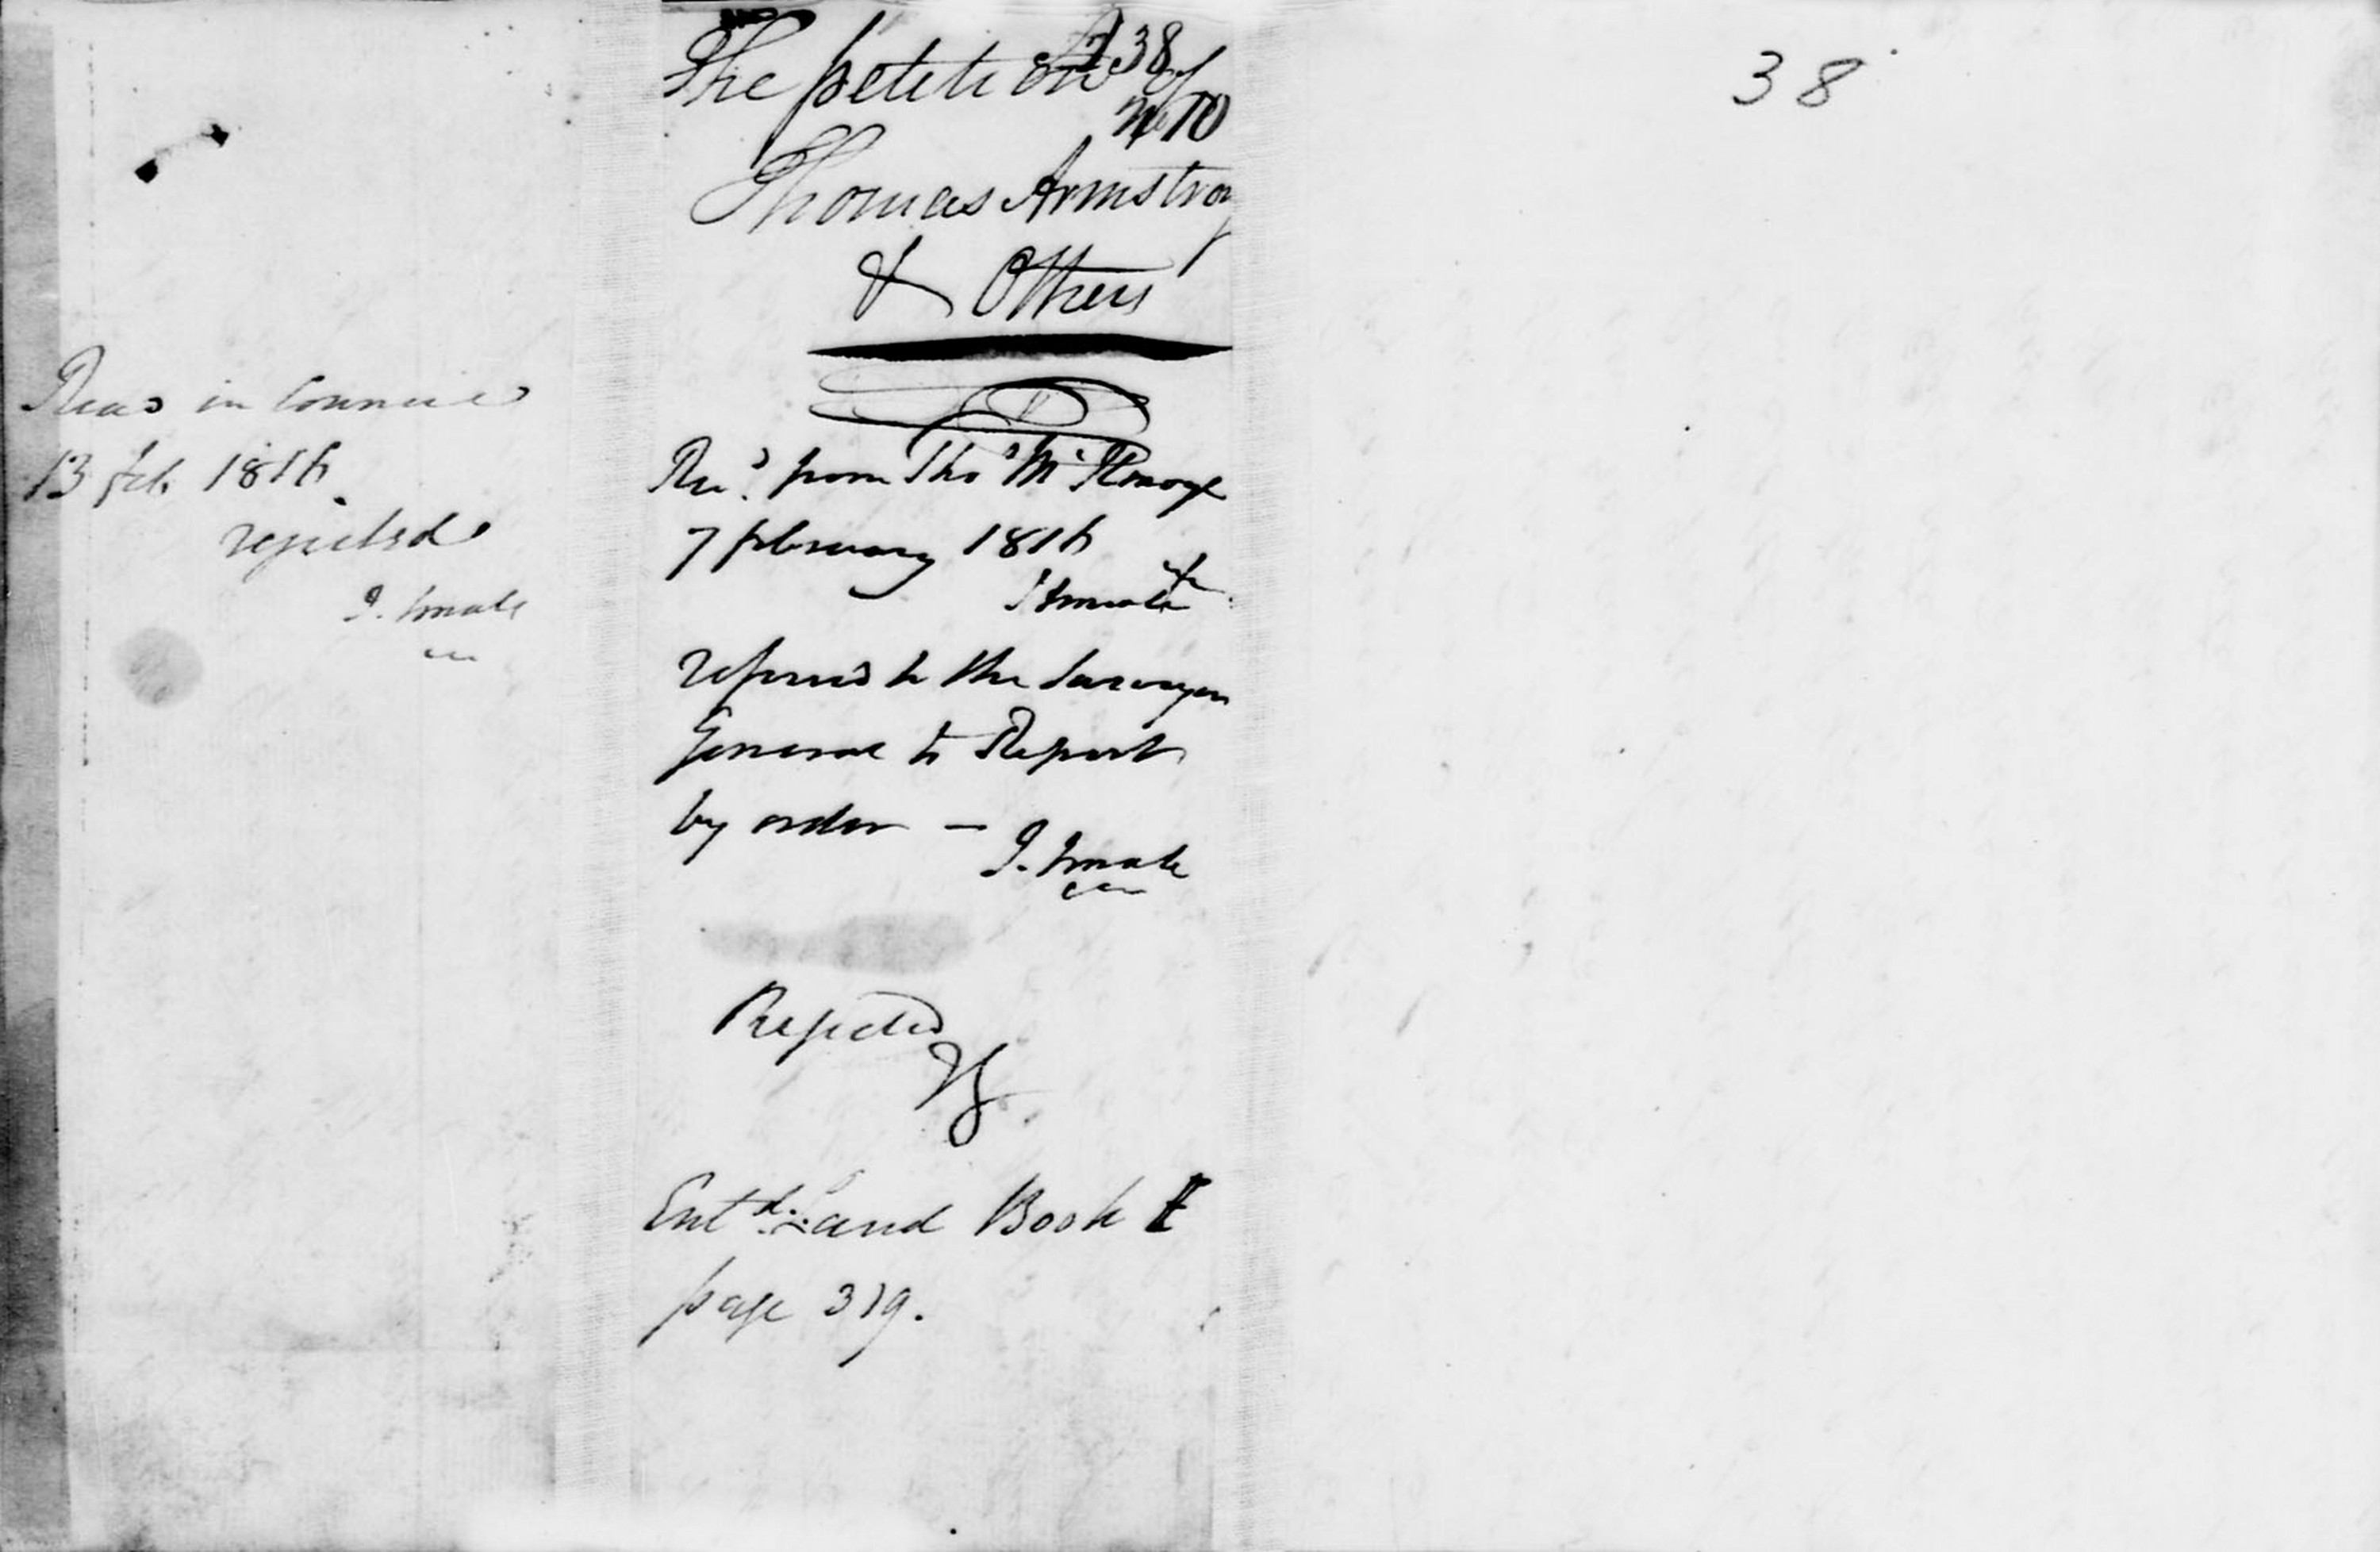 Read in Council
13 feb 1816
rejected
J. Small
The petition of
38
Thomas Armstrong
& Others
Rec.d from Tho.s
7 february 1816
J Small
referred to the Surveyor
General to Report
by order — J. Small
Rejected
Ent.d Land Book
page 319.
38